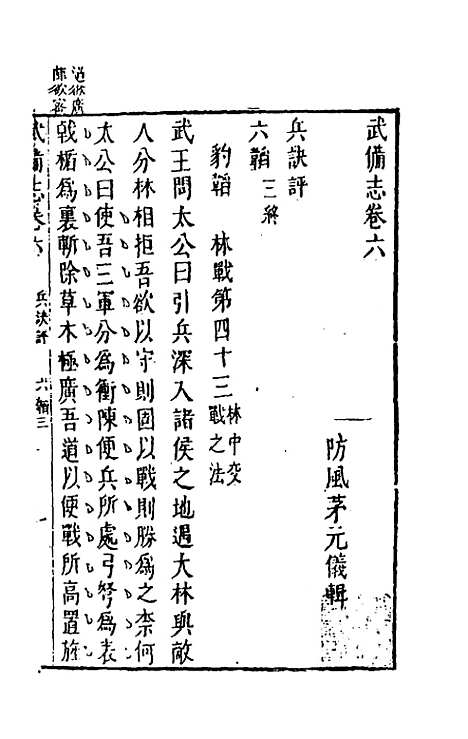 武備志卷六
防風茅元儀輯
兵訣評
六韜三
豹韜　林戰第四十三
林中
戰之法
武王問太公曰引兵深入諸侯之地遇大林與敵
人分林相拒吾欲以守則固以戰則勝為之柰何
太公曰使吾三軍分為衝陳便兵所處弓弩為表
戟楯為裏斬除草木極廣吾道以便戰所高置旌
道欲廣
欲密
武備志卷六　兵訣評　六韜三　一